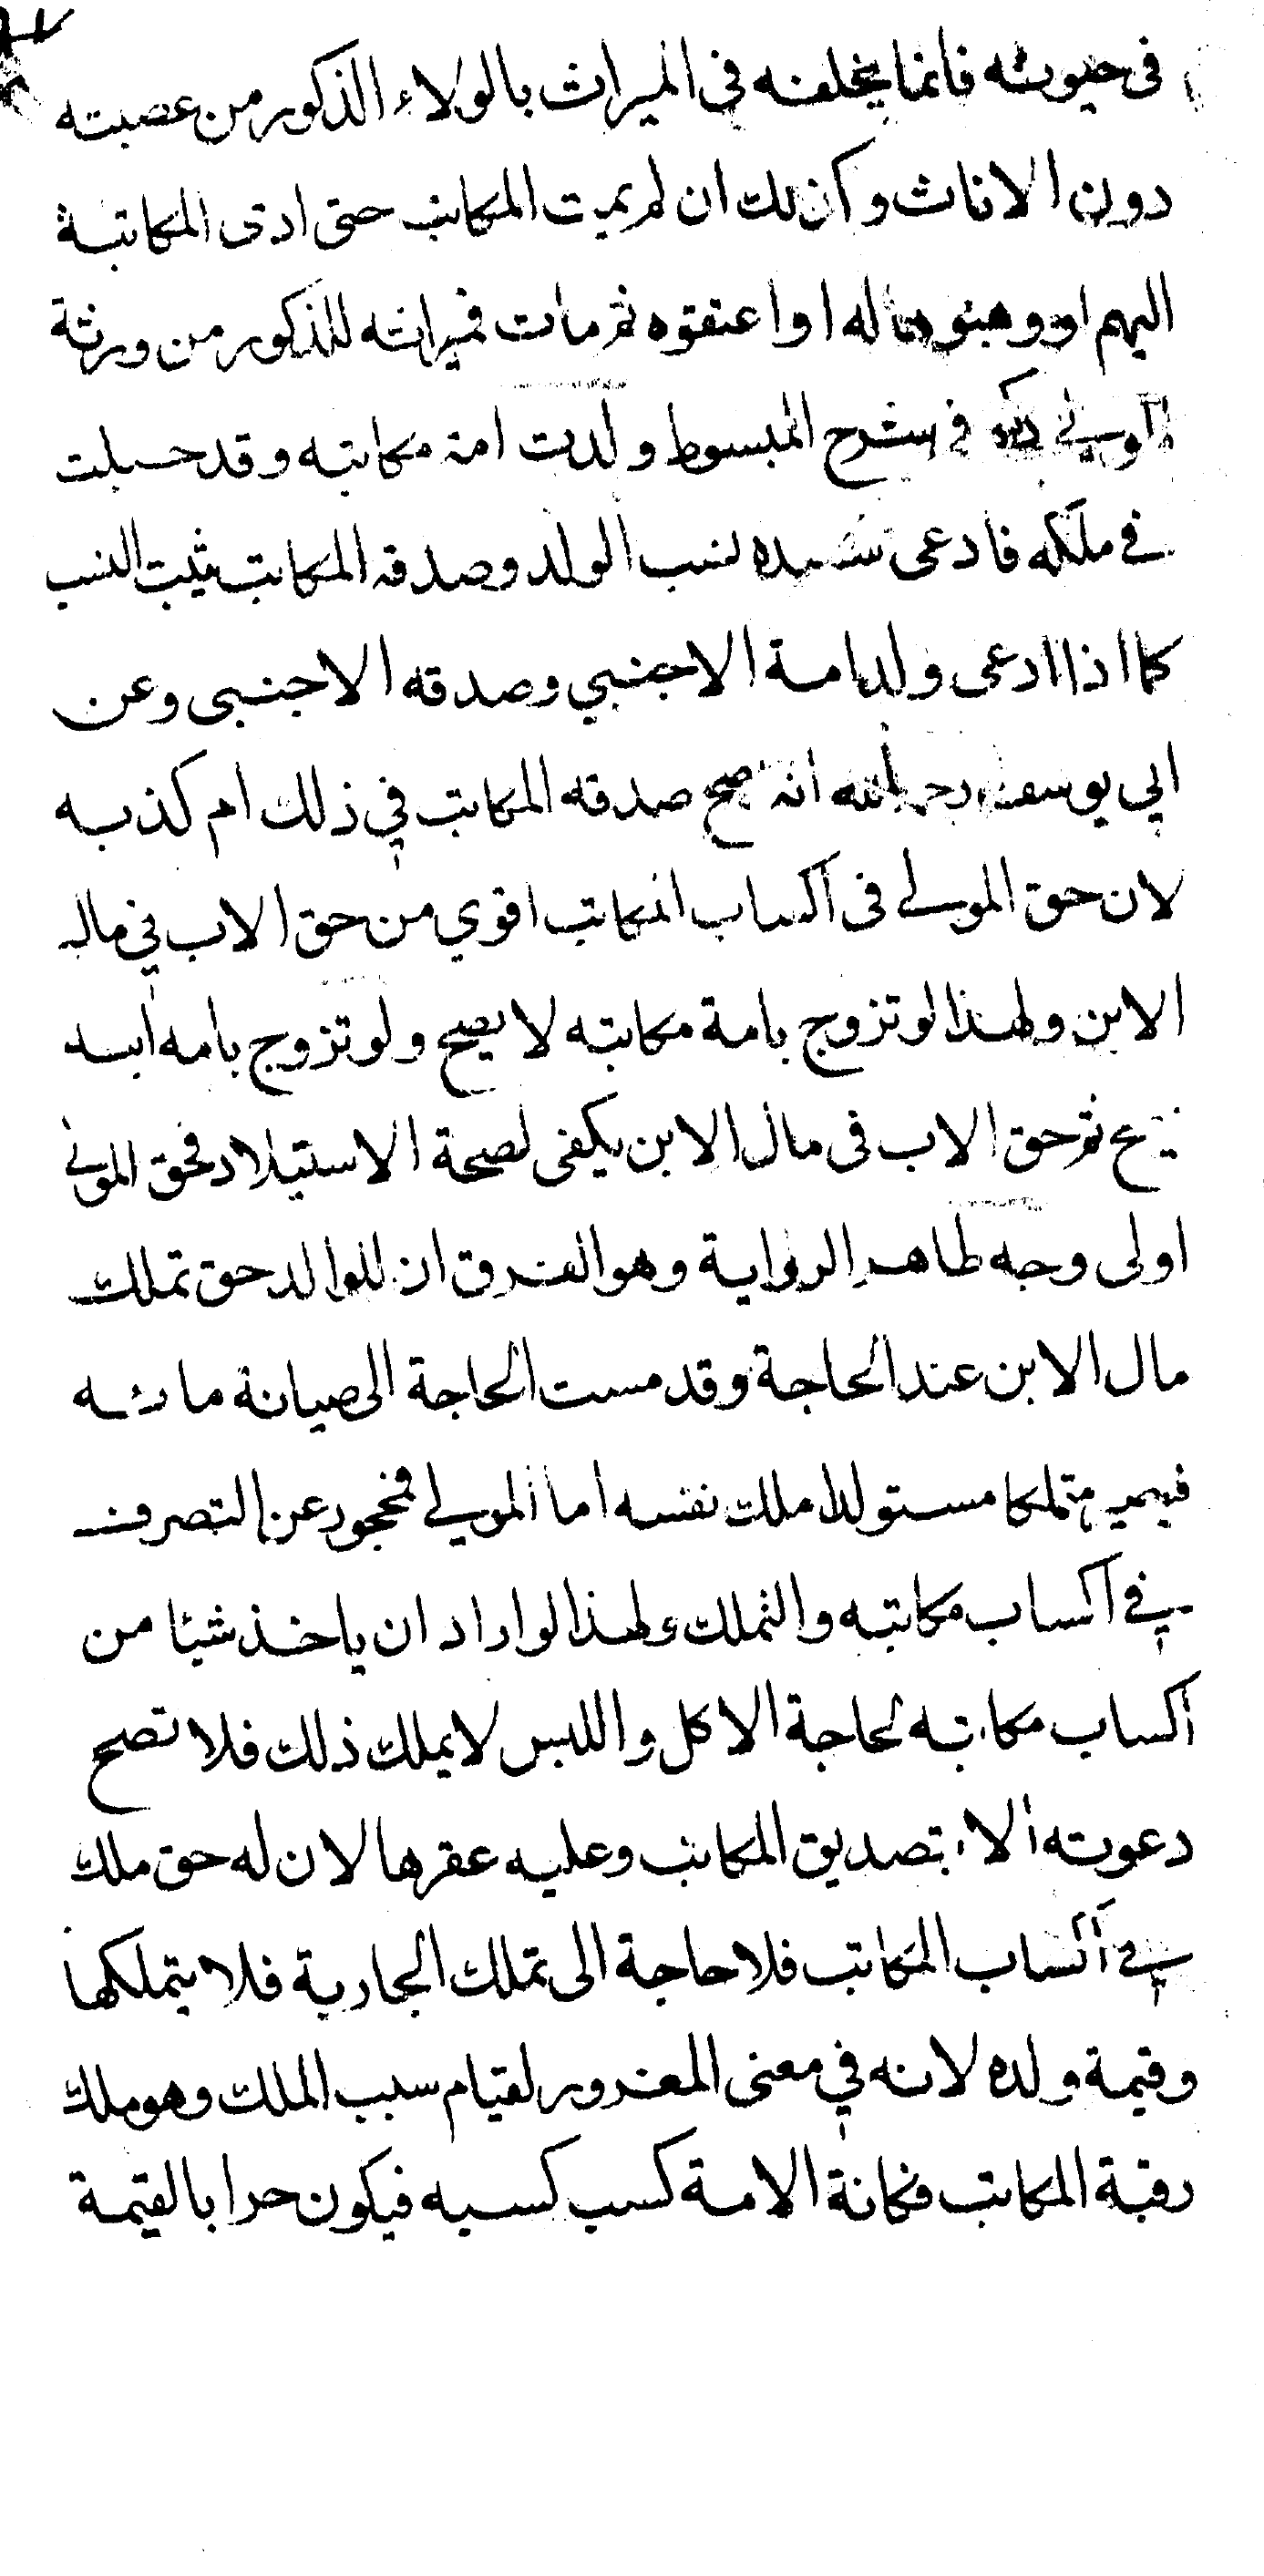 فى حيوته فانما يخلفه فى الميراث بالولاء الذكور من عصبته
دون الاناث وكذلك ان لم يمت المكاتب حتى ادى المكاتبة
اليهم او وهبوها له او اعتقوه ثم مات فميراثه للذكور من ورثة
المولى ذكره فى شرح المبسوط ولدت امة مكاتبه وقد حبلت
فى ملكه فادعى سيده نسب الولد وصدقه المكاتب يثبت النسب
كما اذا ادعى ولد امة الاجنبي وصدقه الاجنبى وعن
ابي يوسف رحمه الله انه يصح صدقه المكاتب في ذلك ام كذبه
لان حق المولى فى اكساب المكاتب اقوي من حق الاب في مال
الابن ولهذا لو تزوج بامة مكاتبه لا يصح ولو تزوج بامه ابنه
يصح ثم حق الاب فى مال الابن يكفى لصحة الاستيلاد فحق المولى
اولى وجه ظاهر الرواية وهو الفرق ان للوالد حق تملك
مال الابن عند الحاجة وقد مست الحاجة الى صيانة مائه
فيصير متملكا مستولدا ملك نفسه اما المولى فمحجور عن التصرف
في اكساب مكاتبه والتملك ولهذا لو اراد ان ياخذ شيئا من
اكساب مكاتبه لحاجة الاكل واللبس لا يملك ذلك فلا تصح
دعوته الا بتصديق المكاتب وعليه عقرها لان له حق ملك
في اكساب المكاتب فلا حاجة الى تملك الجارية فلا يتملكها
وقيمة ولده لانه في معنى المغرور لقيام سبب الملك وهو ملك
رقبة المكاتب فكانة الامة كسب كسبه فيكون حرا بالقيمة